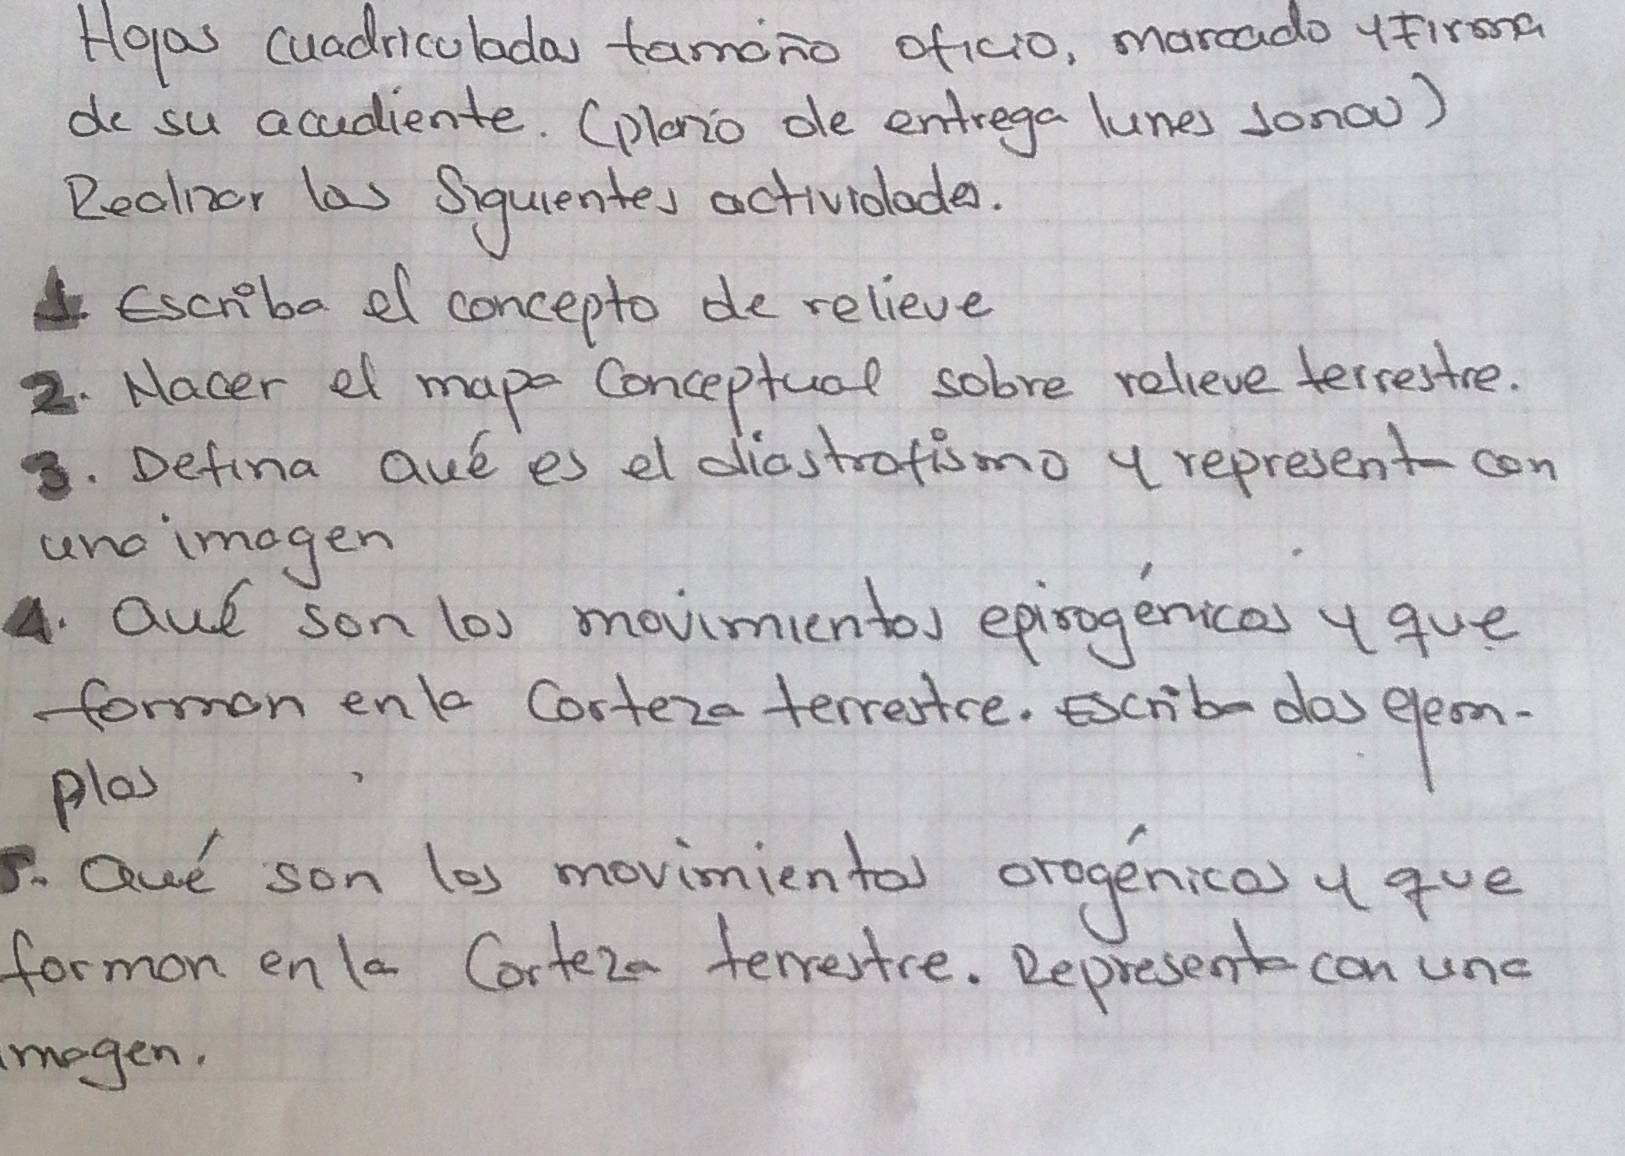 Hojas cuadriculadas tamaño oficio, marcado y Firma
de su acudiente. (plazo de entrega lunes
Realizar las Siguientes actividades.
1. Escriba el concepto de relieve
2. Hacer el mapa Conceptual sobre relieve terrestre.
3. Defina Qué es el diastrofismo y representa con
una imagen
4. Qué son los movimientos epirogénicos y que
forman en la Corteza terrestre. Escriba dos ejem-
plos
5. Qué son los movimientos orogénicos y que
forman en la Corteza terrestre. Representa con una
imagen.